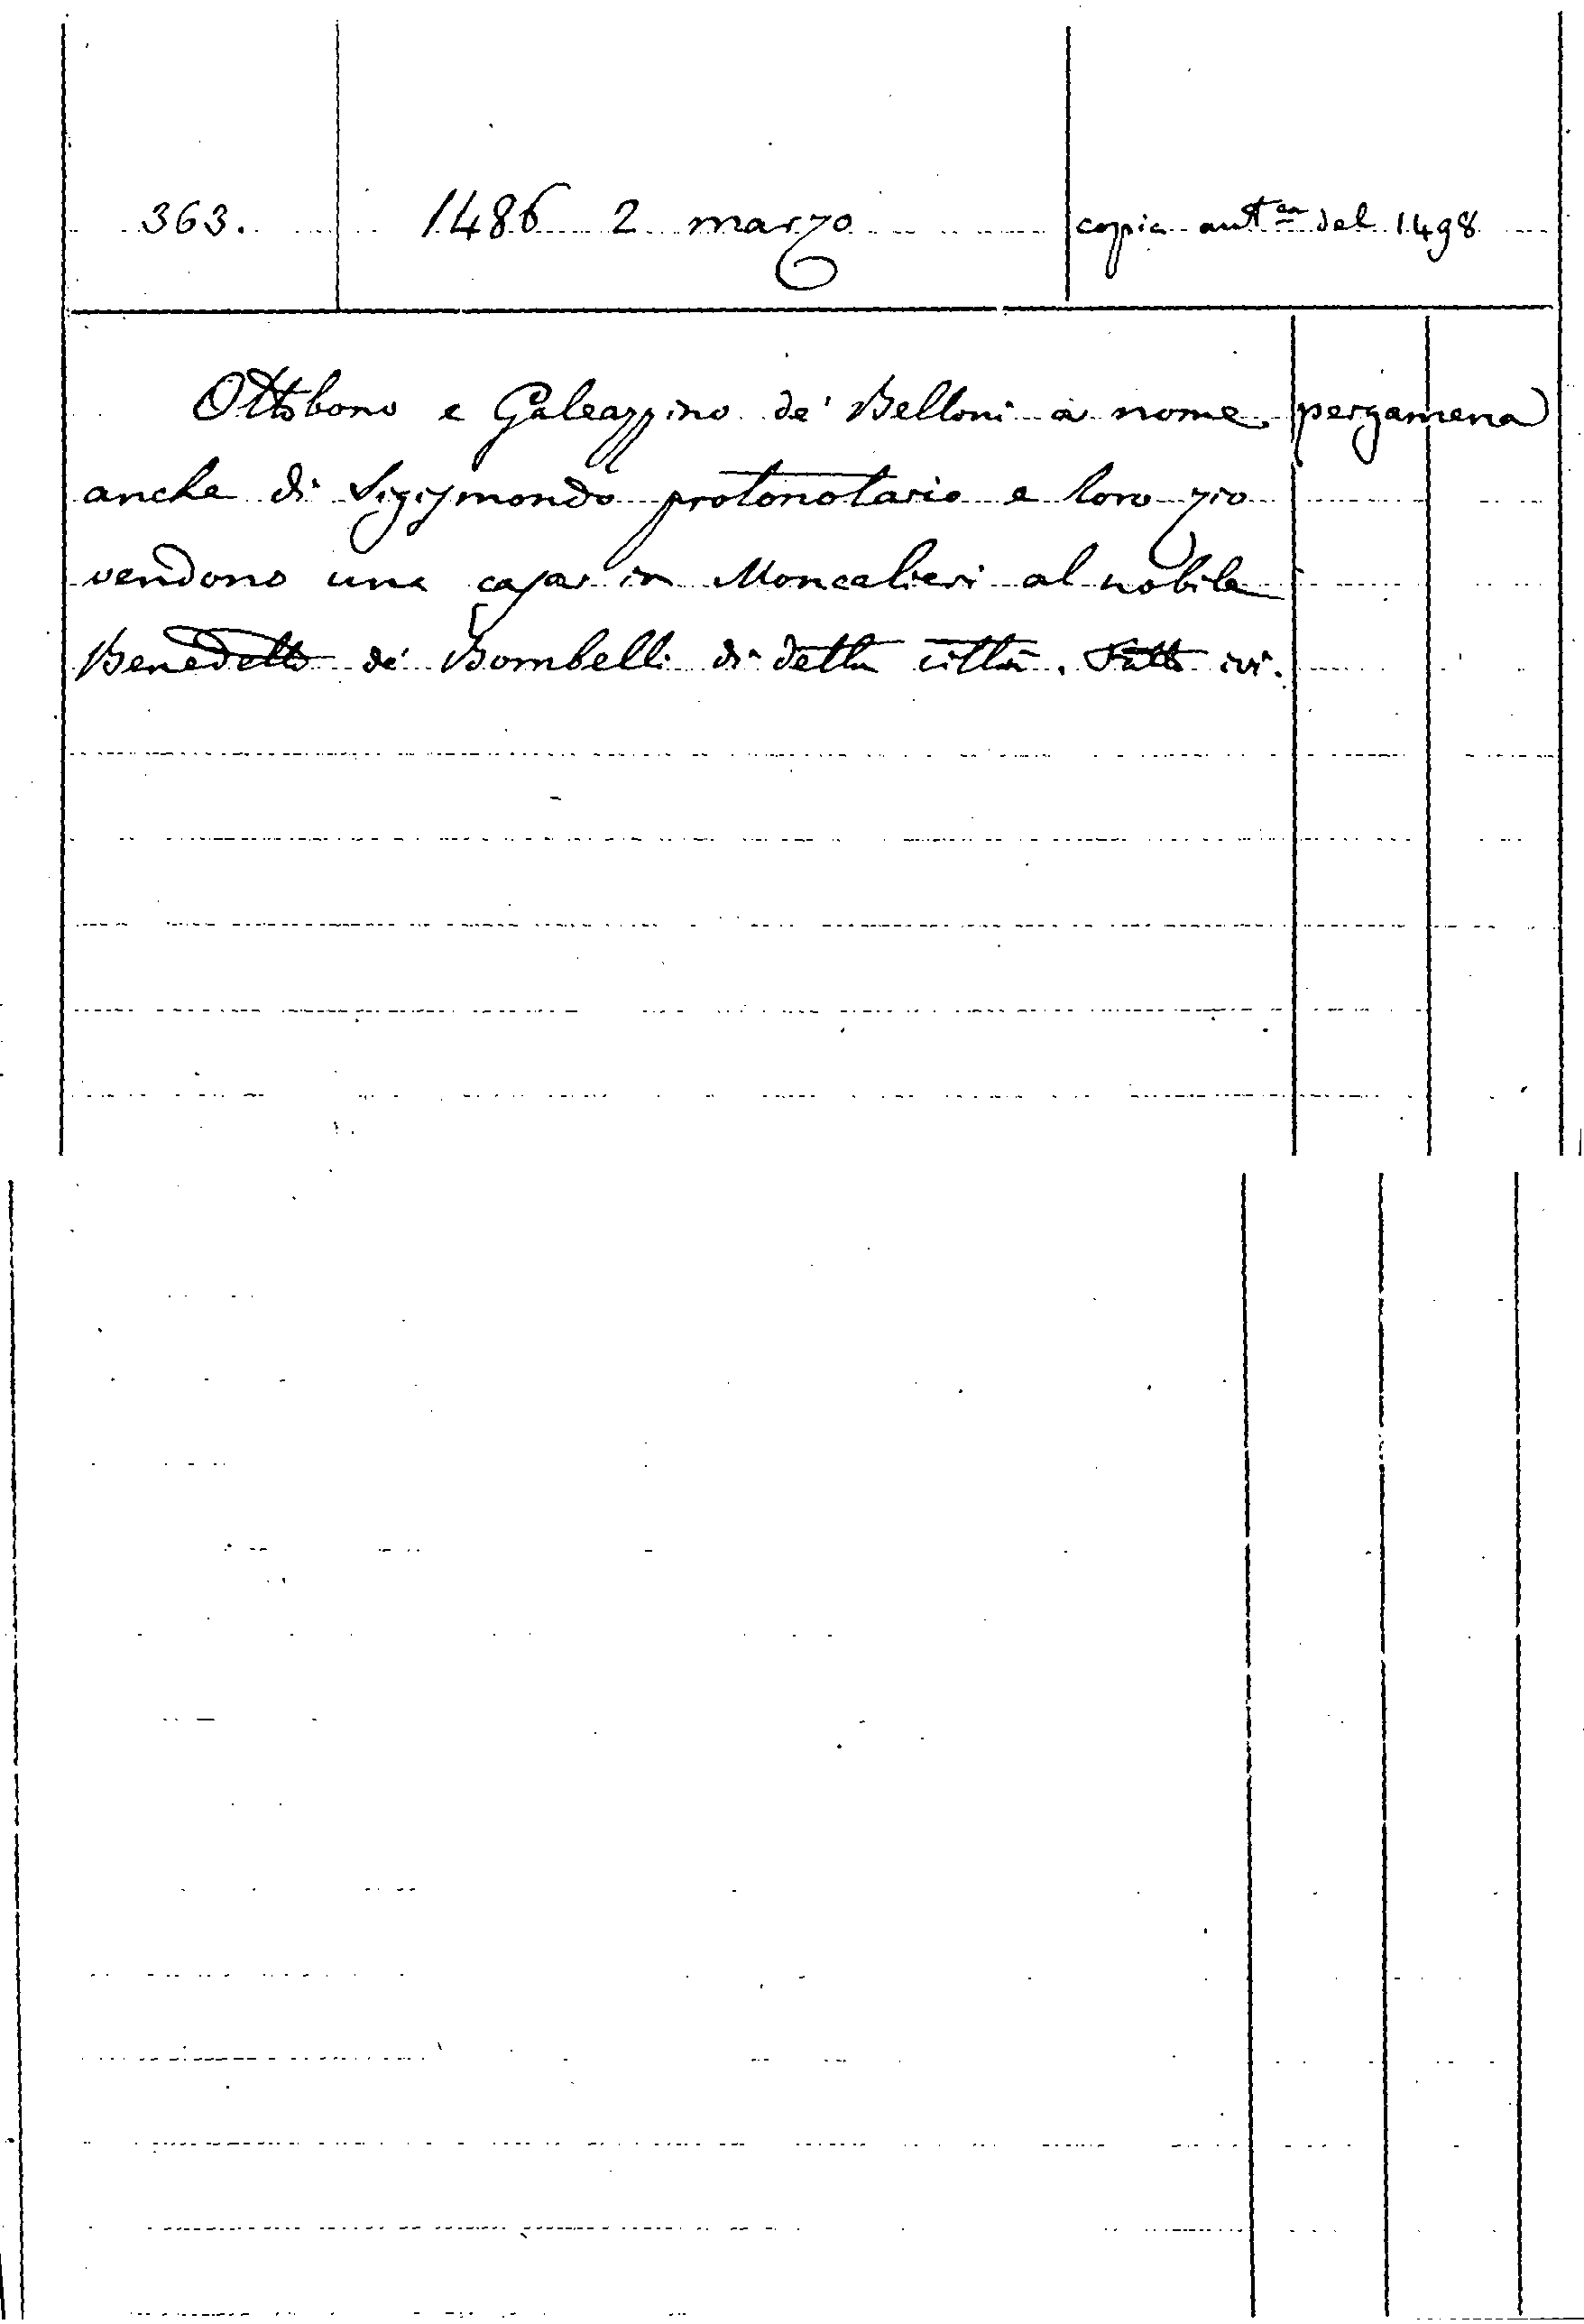 363. 1486 2 marzo copia autca del 1498
Ottobono e Galeazzino de' Belloni a nome pergamena
anche di Sigismondo protonotario e loro zio
vendono una casa in Moncalieri al nobile
Benedetto de' Bombelli di detta città. Fatto ivi.